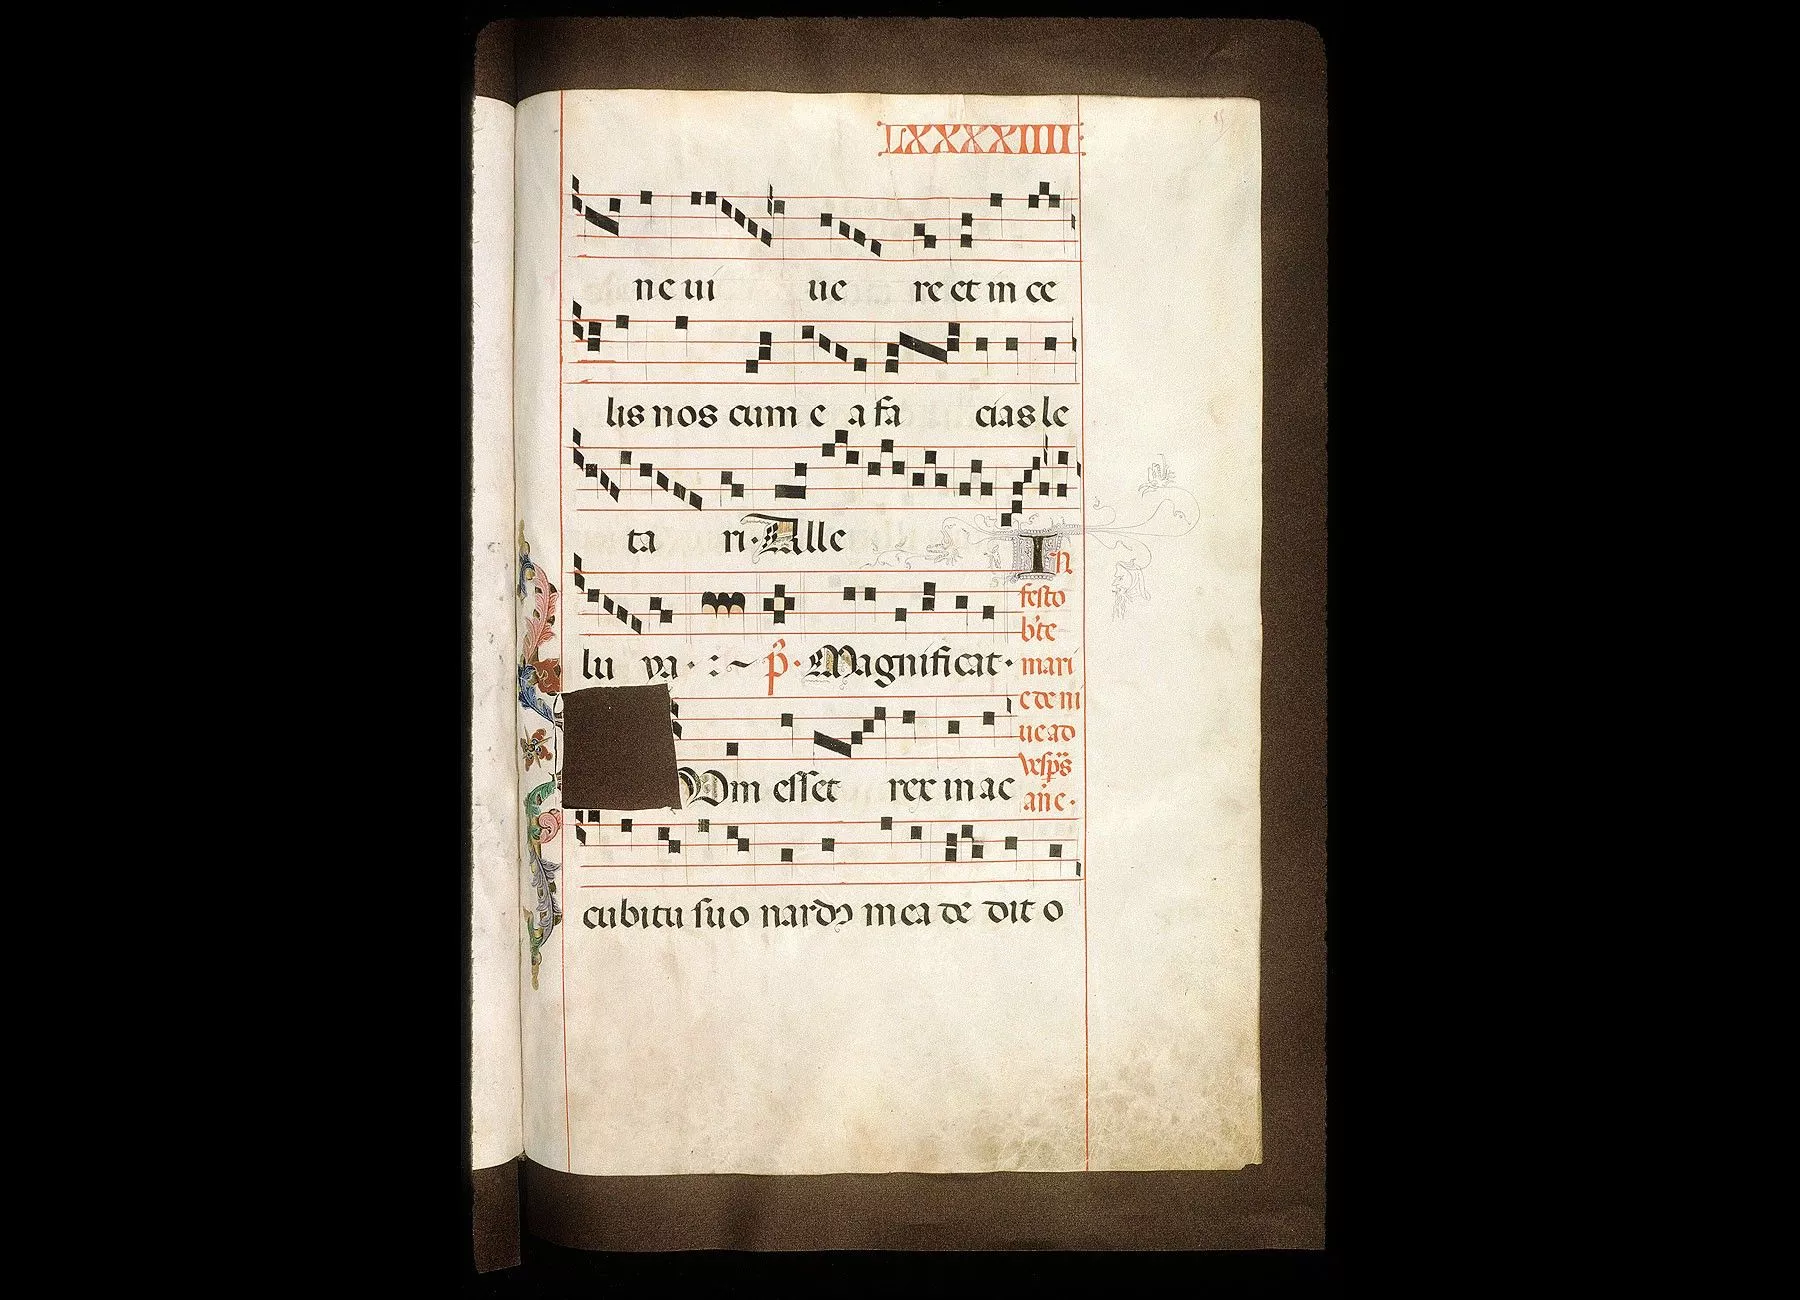 LXXXXIIII
ne ui ue re et in ce
lis nos cum e a fa cias le
ta ri · Alle
lu ya · : ~ p̃ · Magnificat ·
Vm esset rex in ac
cubitu suo nardꝰ mea de dit o
In
festo
b̃te
mari
e de ni
ue ad
vesp̃s
añe ·